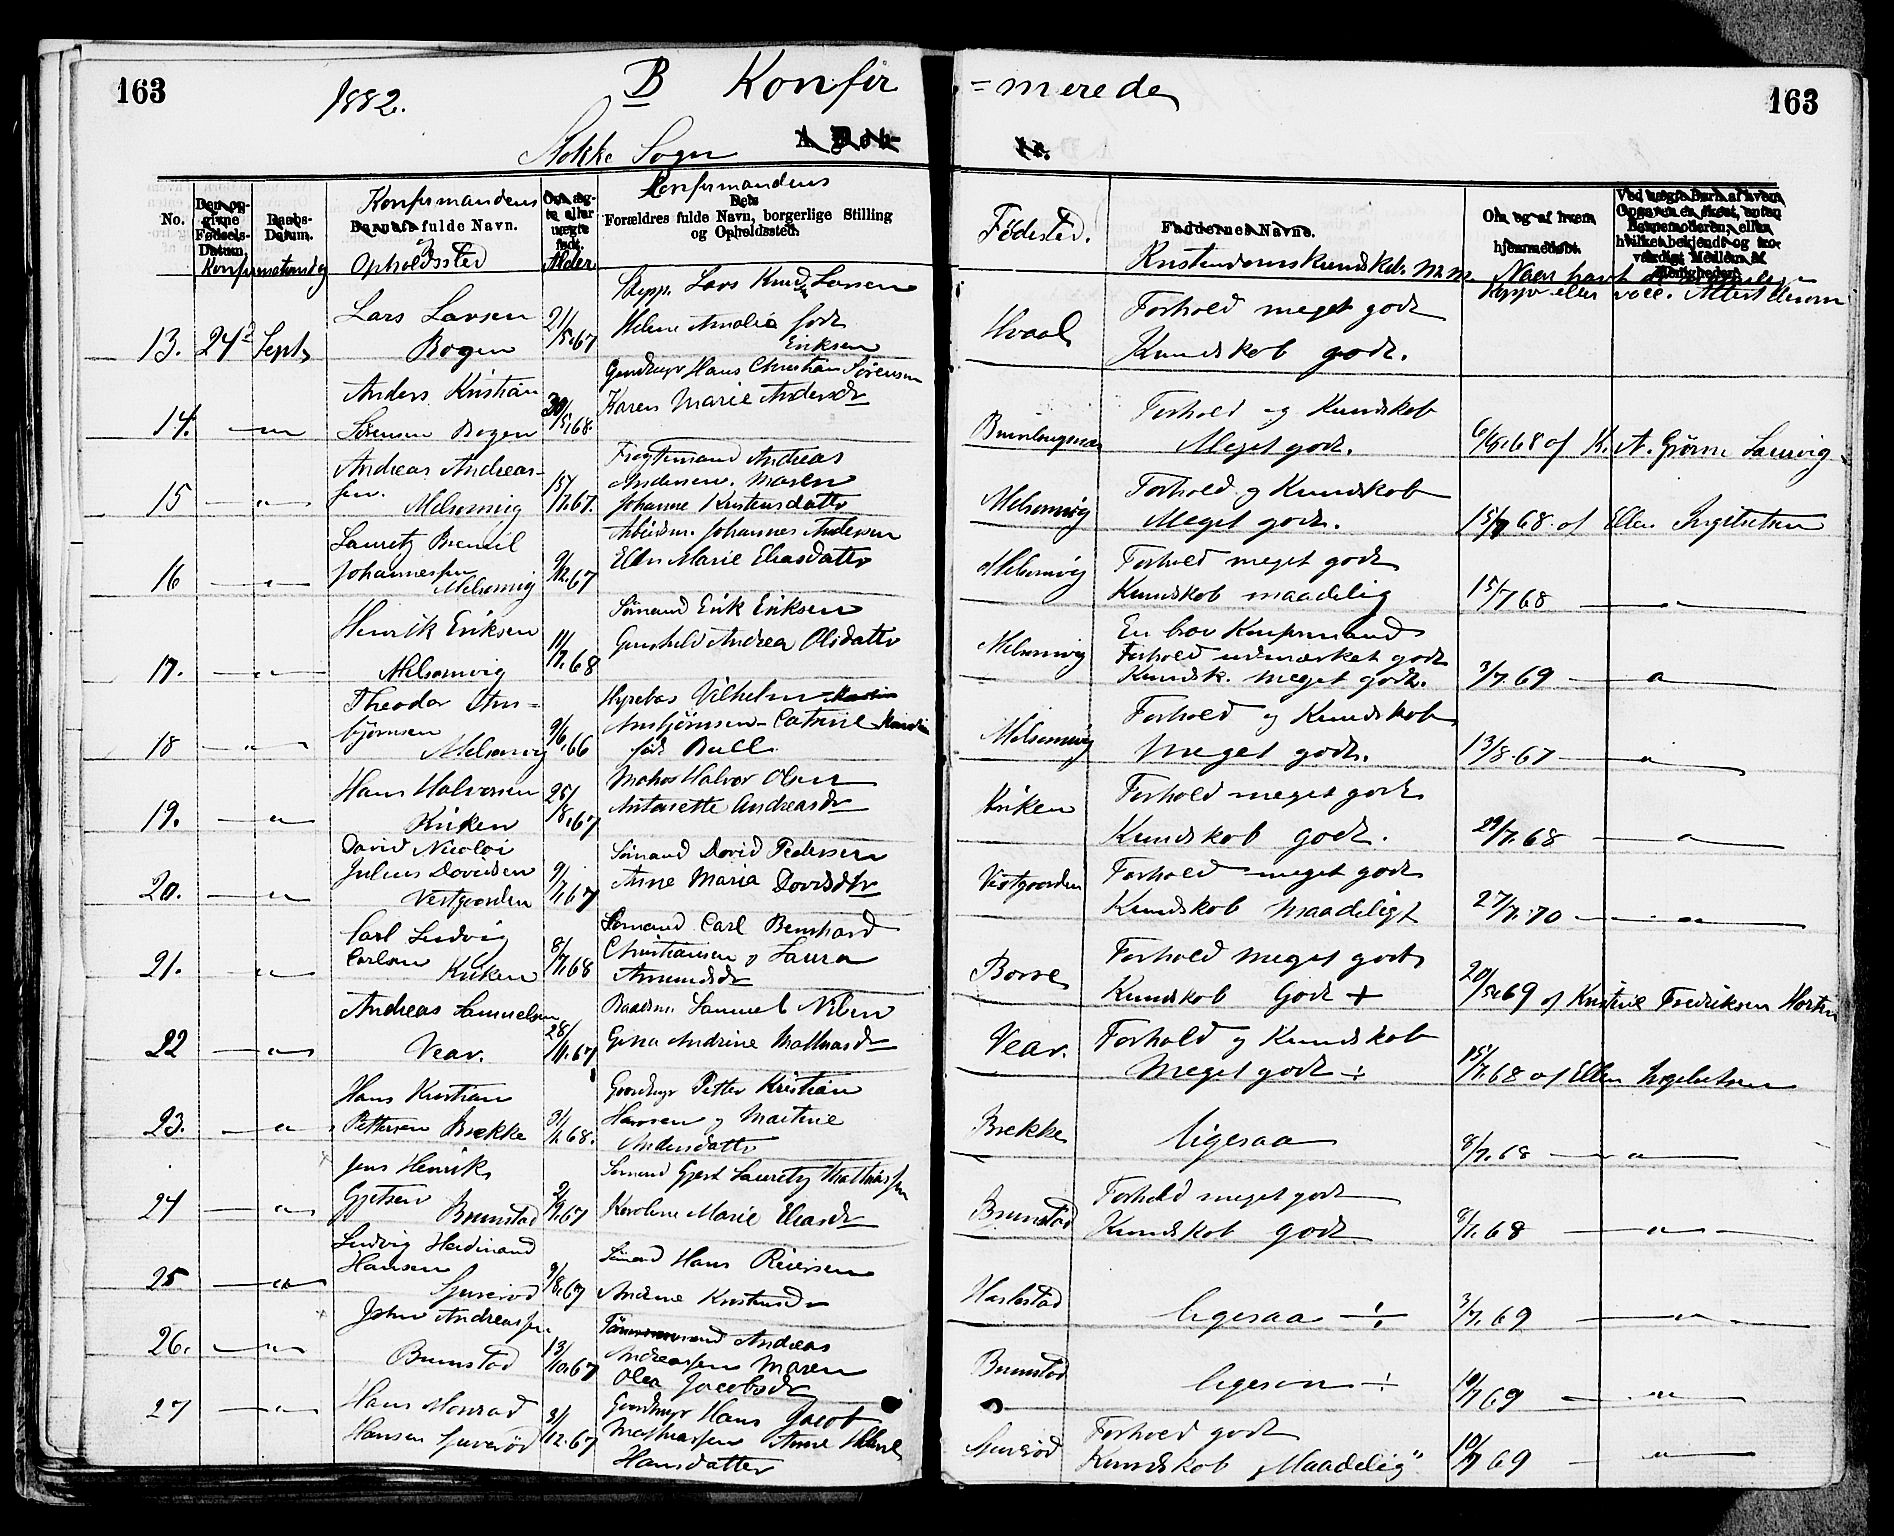 163
1882.
B Konfir
=merede
163
Stokke Sogn
A Døb-
te.
No.
Den op-
givne
Fødsels-
Datum.
Konfirmationsdag
Daabs-
Datum.
Konfirmandens
Barnets fulde Navn.
Opholdssted
Om æg-
te eller
uægte
født.
Alder
Konfirmandens
Dets
Forældres fulde Navn, borgerlige Stilling
og Opholdssted.
Fødested.
Faddernes Navne.
Kristendomskundskab m.m.
Om og af hvem
hjemmedøbt.
Ved uægte Barn af hvem
Opgaven er skeet, enten
Barnemoderen, eller
hvilket bekjendt og tro-
værdigt Medlem af
Menigheden.
13. 24 Septb
Lars Larsen
Bogen
21/5 67
Skipp. Lars Knud Larsen
Helene Amalia født
Eriksen
Hvaal
Forhold meget godt
Kundskab godt.
14.
Anders Kristian
Sørensen Bogen
30/5 68
Gaardbrgr Hans Christian Sørensen
Karen Marie Andersdr
Forhold og Kundskab
Meget godt.
6/6 68 af K. A. Grørn Laurvig
15
Andreas Andreas-
sen.
Melsomvig
15/7.67.
Fragtemand Andreas
Andersen. Maren
Johanne Kristensdatter
Melsomvig
Forhold og Kundskab
Meget godt.
15/7 68 af Ellen Ingebretsen
16
Lauretz
Johannessen
Melsomvig
9/12.67
Arbeidsm. Johannes Andersen
Ellen Marie Eliasdatter
Melsomvig
Forhold meget godt
Kundskab maadelig
15/7 68
17.
Henrik Eriksen
Melsomvig
11/7.68
Sømand Erik Eriksen
Gunhild Andrea Olsdatter
Melsomvig
En brav Konfirmand
Forhold udmærket godt
Kundsk. meget godt.
3/7.69
18
Theodor Ans-
bjørnsen
Melsomvig
9/6.66
Vilhelm
Ansbjørnsen Catrine
født Bull.
Melsomvig
Forhold og Kundskab
Meget godt.
13/8 67
19.
Hans Halvorsen
Kriken
25/8.67
Halvor Olsen
Antonette Andreasdr
Kriken
Forhold meget godt
Kundskab godt.
29/7.68
20.
David Nicolai
Julius Davidsen
Vestgaarden
9/7.67
Sømand David Pedersen
Anne Maria Davidsdtr
Vestgaarden
Forhold meget godt
Kundskab Maadeligt
27/7.70
21.
Carl Ludvig
Carlsen
Kriken
8/7.68
Sømand Carl Bernhard
Christiansen og Laura
Amundsdr
Borre
Forhold Meget godt
Kundskab Godt +
20/5 69 af Kristine Fredriksen Horten
22
Andreas Samuelsen
Vear.
28/11.67
Baadsm. Samuel Nilsen
Gina Andrine Mathiasdr
Vear.
Forhold og Kundskab
Meget godt ÷
15/7.68 af Ellen Ingebretsen
23.
Hans Kristian
Pettersen Brekke
3/1.68.
Gaardbrgr Petter Kristian
Hansen og Martine
Andersdatter
Brekke
ligesaa
8/7.68
24
Jens Henrik
Gjertsen
Brunstad
Sømand Gjert Lauretz Mathiassen
Karoline Marie Eliasdr
Brunstad
Forhold meget godt
Kundskab godt
8/1.68
25
Ludvig Herdinand
Hansen
9/8.67
Sømand Hans Reiersen
Andrine Kristensdr
Haslestad
ligesaa ÷
3/7.69
26.
John Andreassen
Brunstad
13/10.67
Tømmermand Andreas
Andreassen Maren
Olea Jacobsdr
Brunstad
ligesaa ÷
10/7 69
27
Hans Konrad
Hansen
3/12.67
Gaardbrgr Hans Jacob
Mathiassen Anne
Hansdatter
Forhold godt
Kundskab „Maadelig"
10/7 69